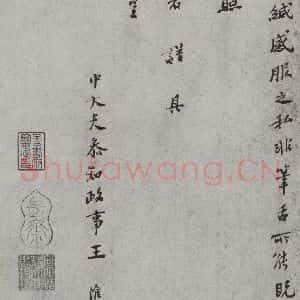 緘感服之私非筆舌所能既
照
右謹具
呈
中大夫參知政事王 淮
shufawang.CN